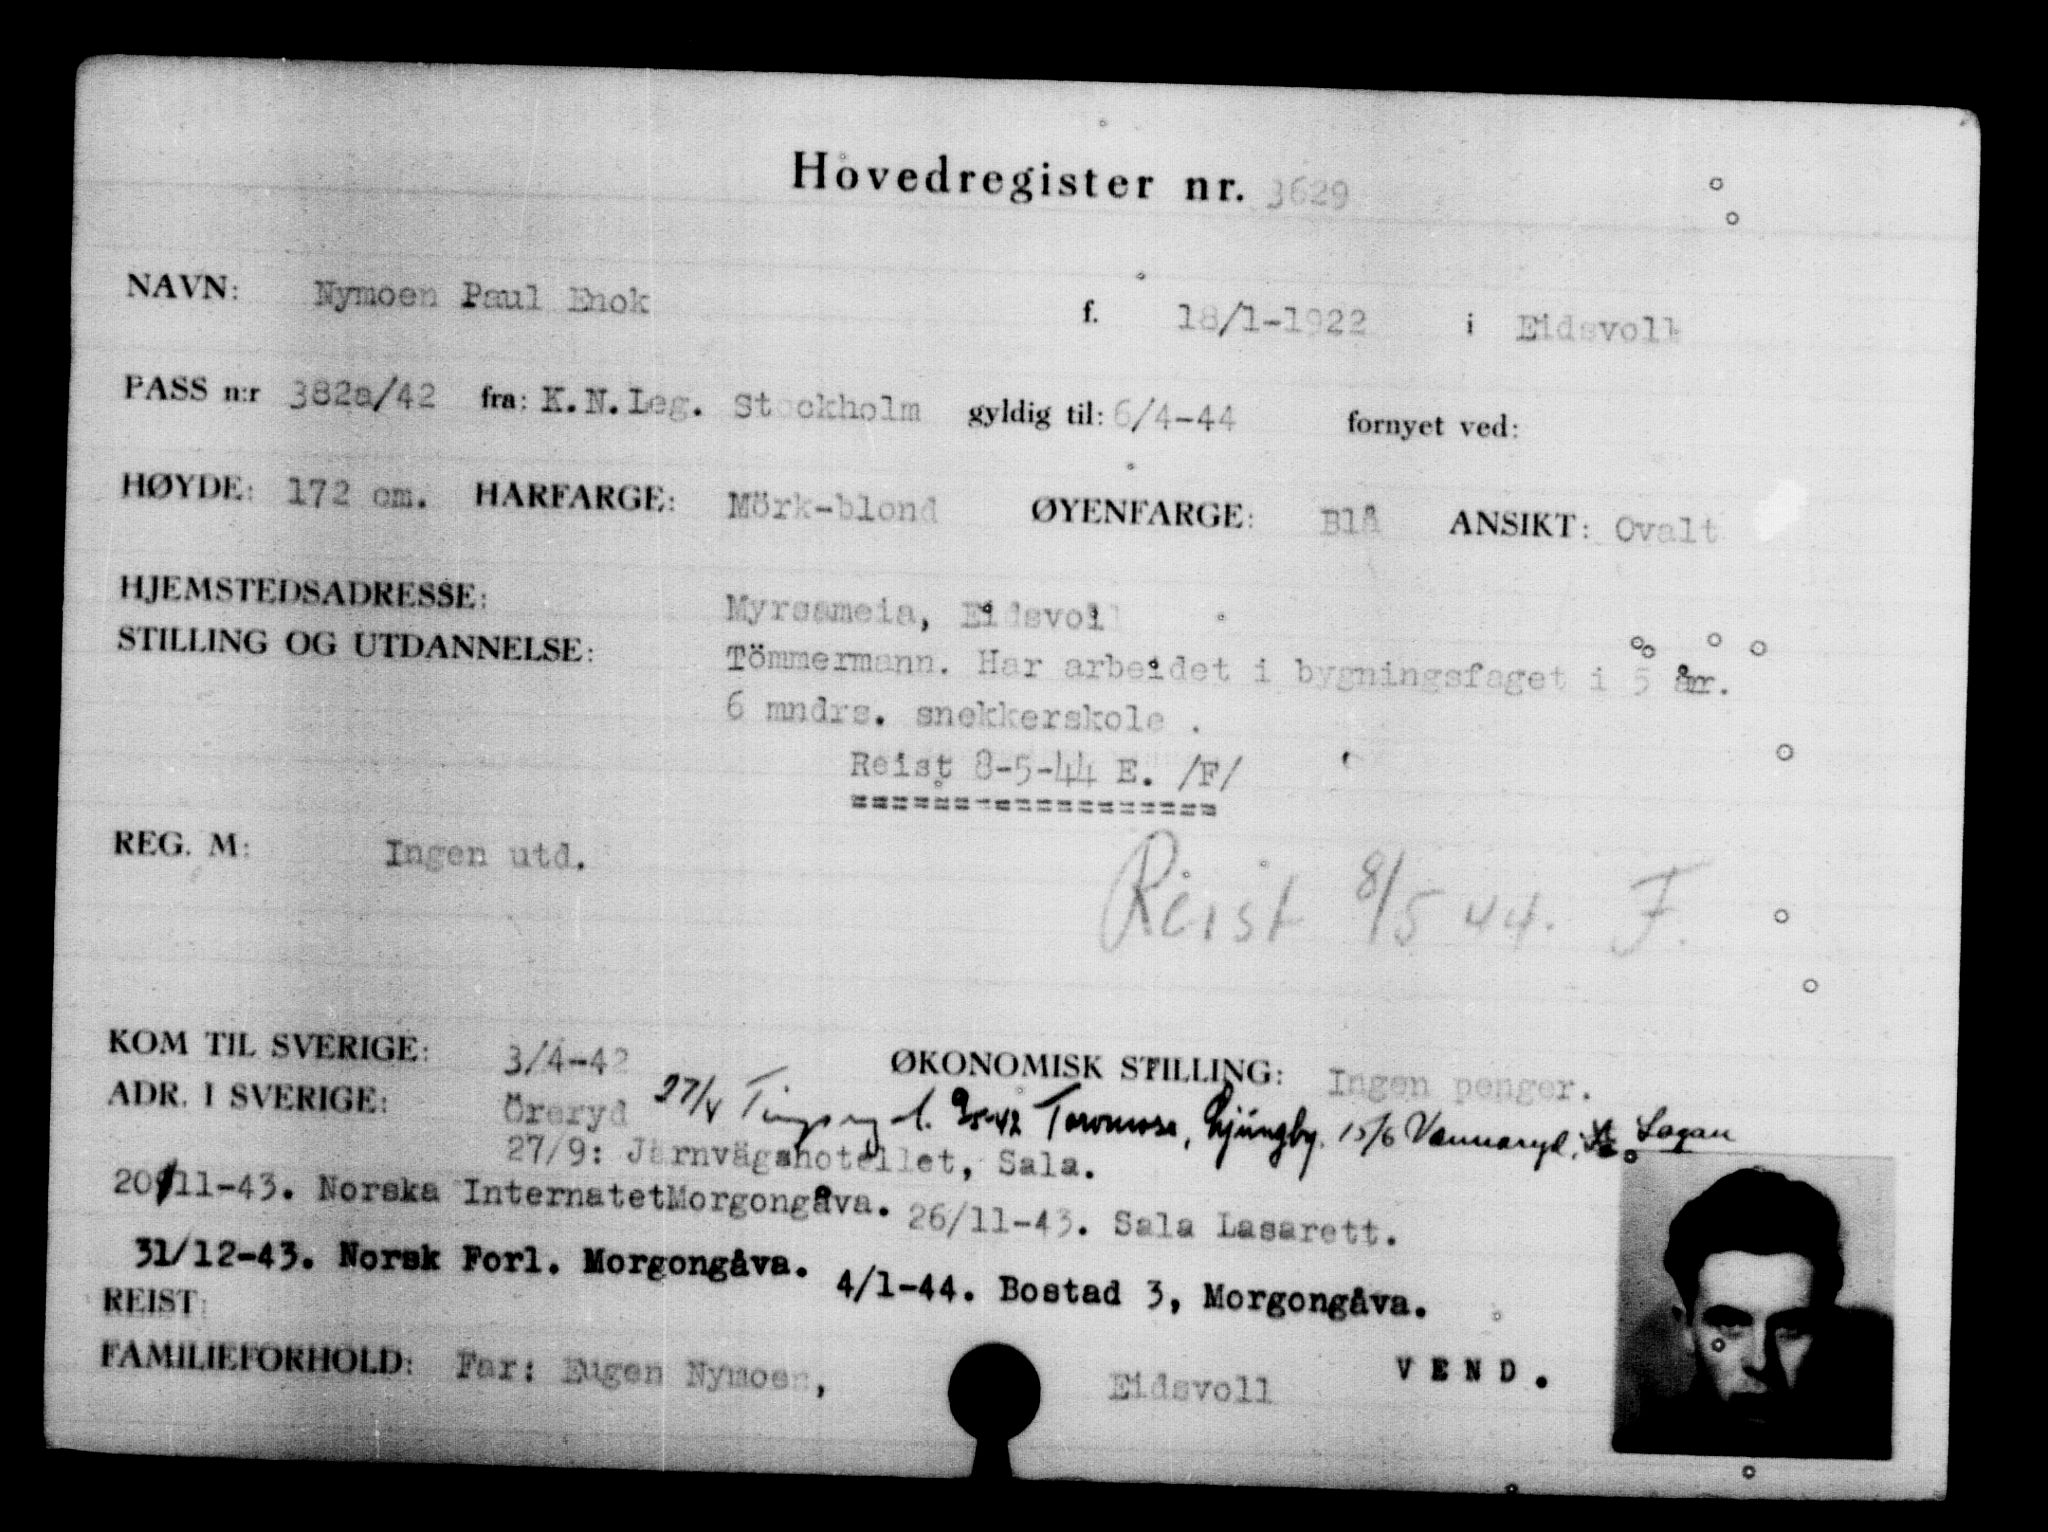 Hovedregister nr. 3629
NAVN: Nymoen Paul Enok f. 18/1-1922 i Eidsvoll
PASS n:r 382a/42 fra: K.N.Leg. Stockholm gyldig til: 6/4-44 fornyet ved:
HØYDE: 172 cm. HARFARGE: Mörk-blond ØYENFARGE: Blå ANSIKT: Ovalt
HJEMSTEDSADRESSE: Myrsameia, Eidsvoll
STILLING OG UTDANNELSE: Tömmermann. Har arbeidet i bygningsfaget i 5 år.
6 mndrs. snekkerskole .
Reist 8-5-44 E. /F/
==================
REG. M: Ingen utd.
Reist 8/5 44. F.
KOM TIL SVERIGE: 3/4-42 ØKONOMISK STILLING: Ingen penger.
ADR. I SVERIGE: Öreryd 27/4 9/5-42 Ljungby. 15/6 Vannaryd, Lagan
27/9: Järnvägshotellet, Sala.
20/11-43. Norska InternatetMorgongåva. 26/11-43. Sala Lasarett.
31/12-43. Norsk Forl. Morgongåva. 4/1-44. Bostad 3, Morgongåva.
REIST:
FAMILIEFORHOLD: Far: Eugen Nymoen, Eidsvoll VEND.